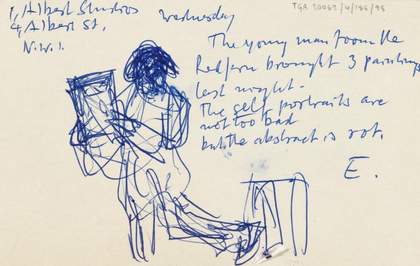 1, Albert Studios
4, Albert St.
N.W.1.
Wednesday
TGA 20062/4/186/98
The young man from the
Redfern brought 3 paintings
last night.
The self portraits are
not too bad
but the abstract is rot.
E.